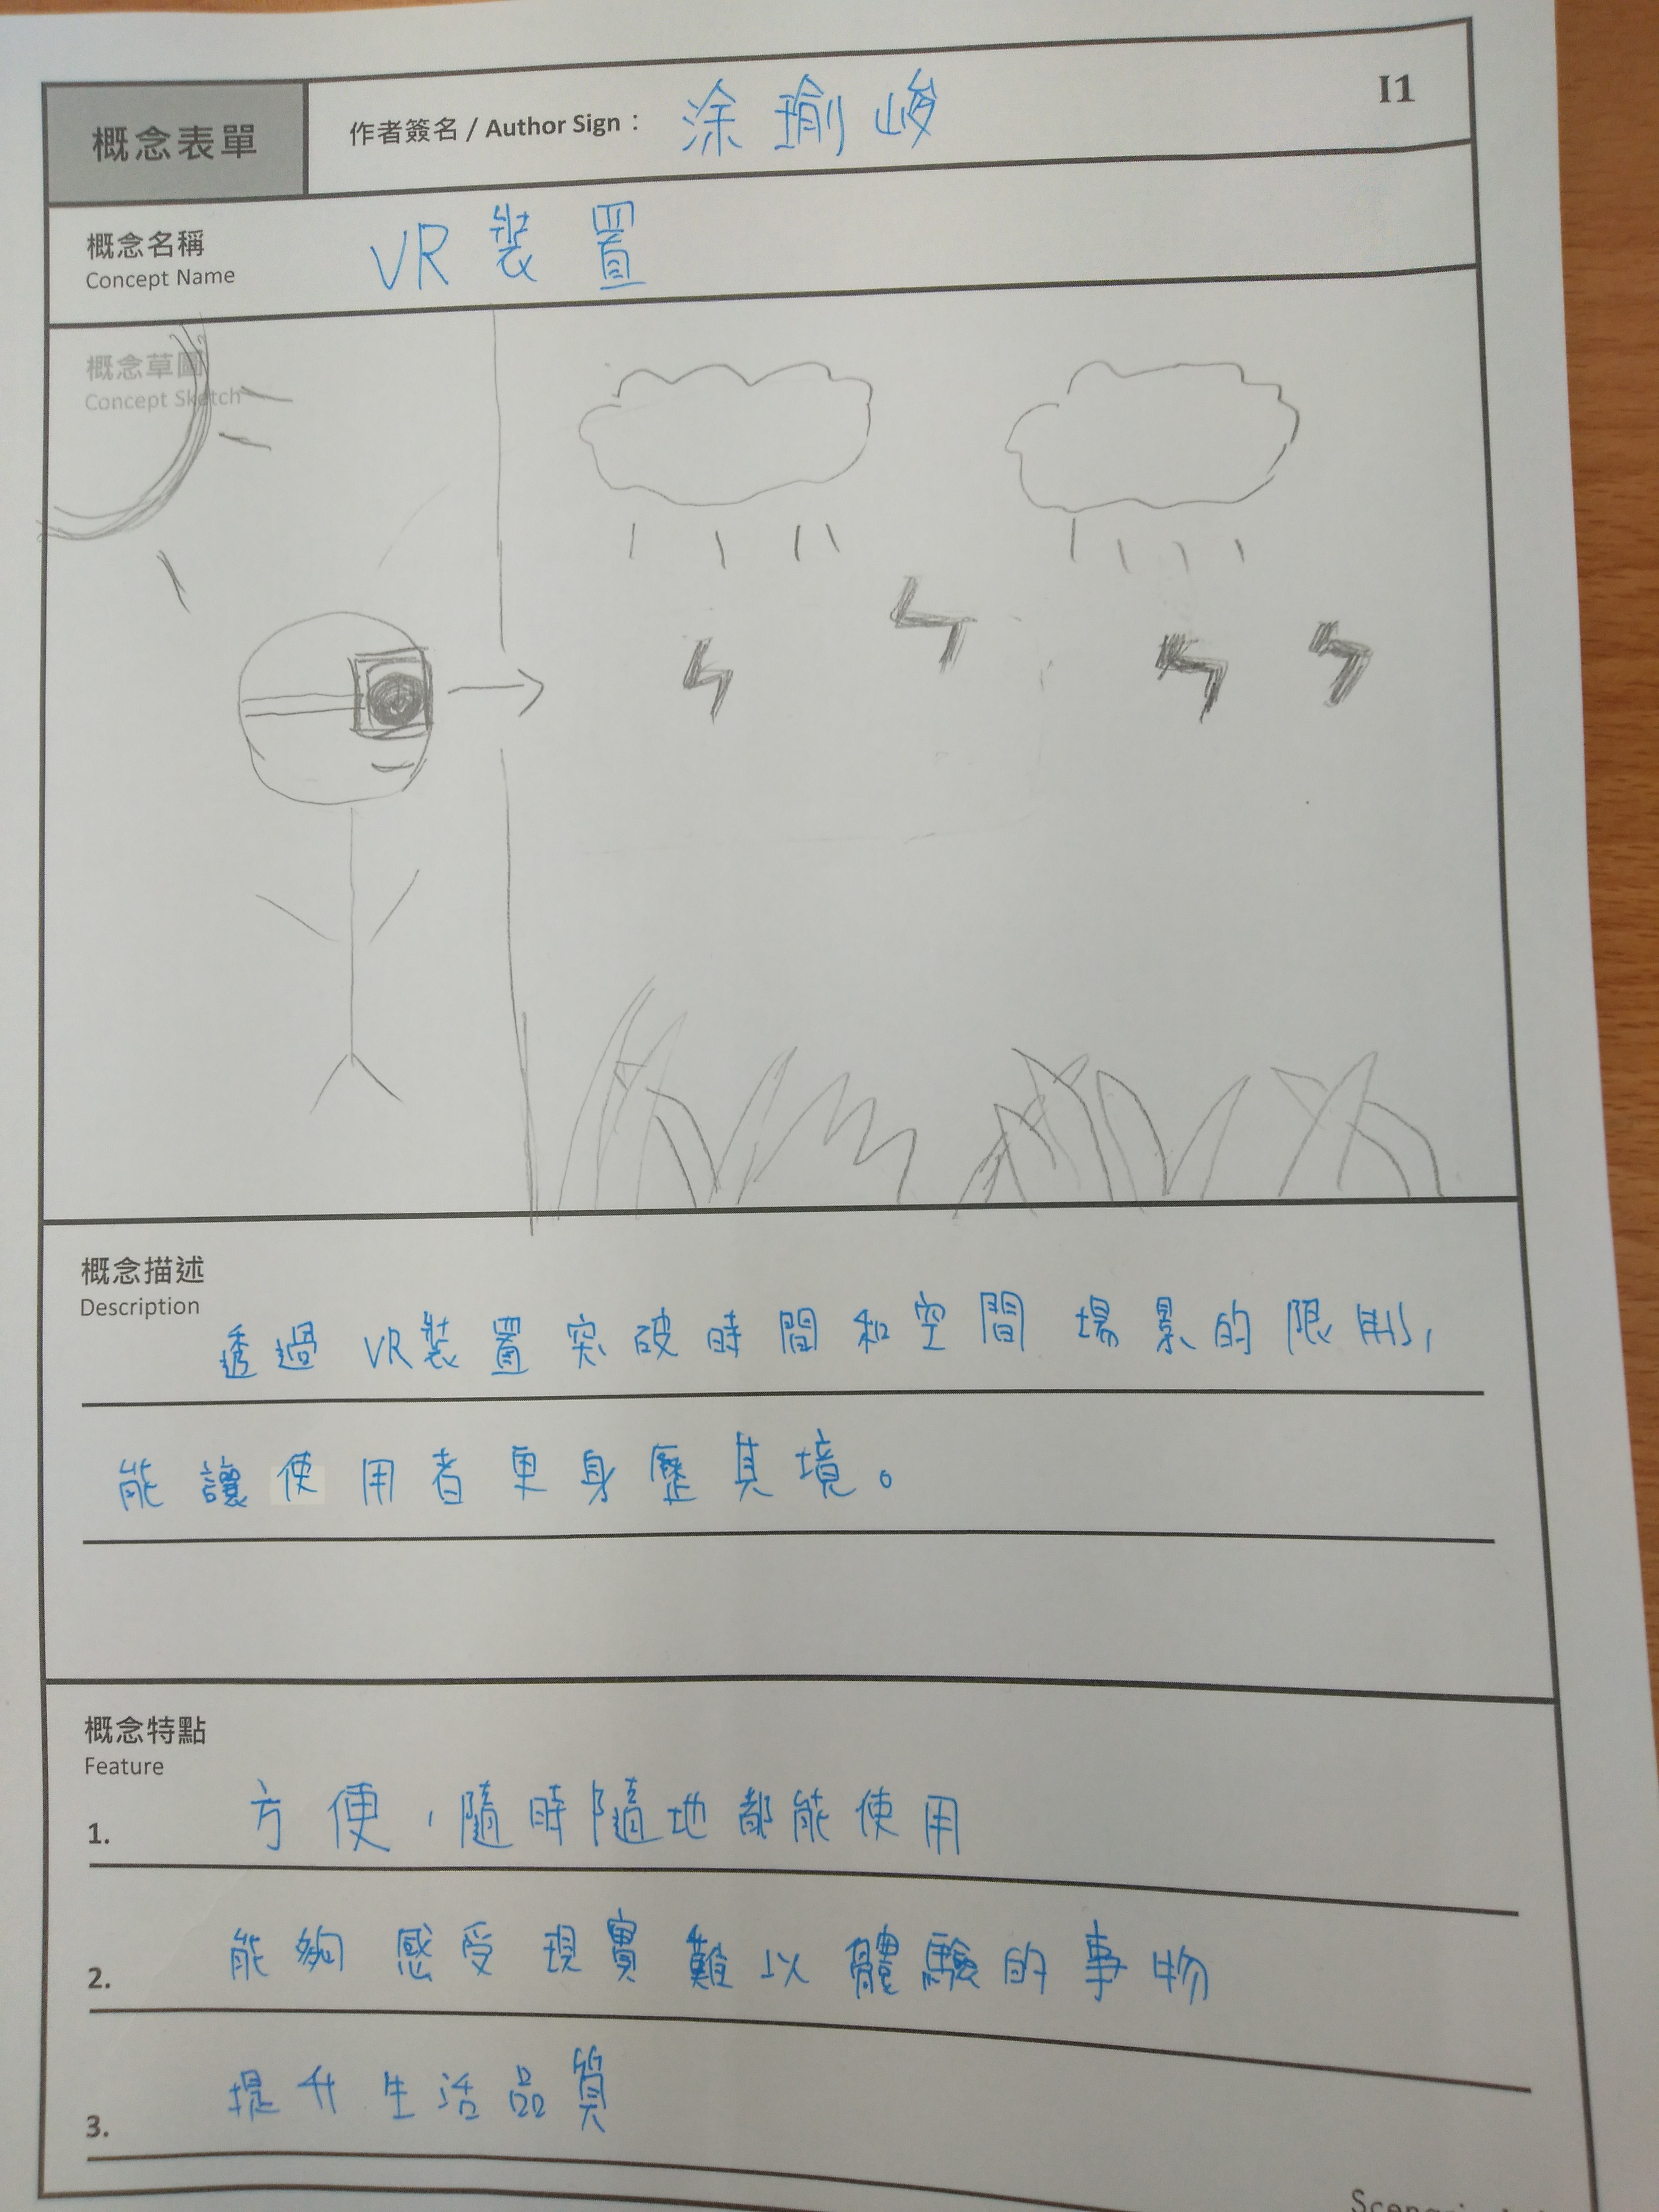 概念表單
作者簽名 / Author Sign： 涂瑜峻
I1
概念名稱
Concept Name
VR裝置
概念草圖
Concept Sketch
概念描述
Description
透過VR裝置突破時間和空間場景的限制，
能讓使用者更身歷其境。
概念特點
Feature
1. 方便，隨時隨地都能使用
2. 能夠感受現實難以體驗的事物
3. 提升生活品質